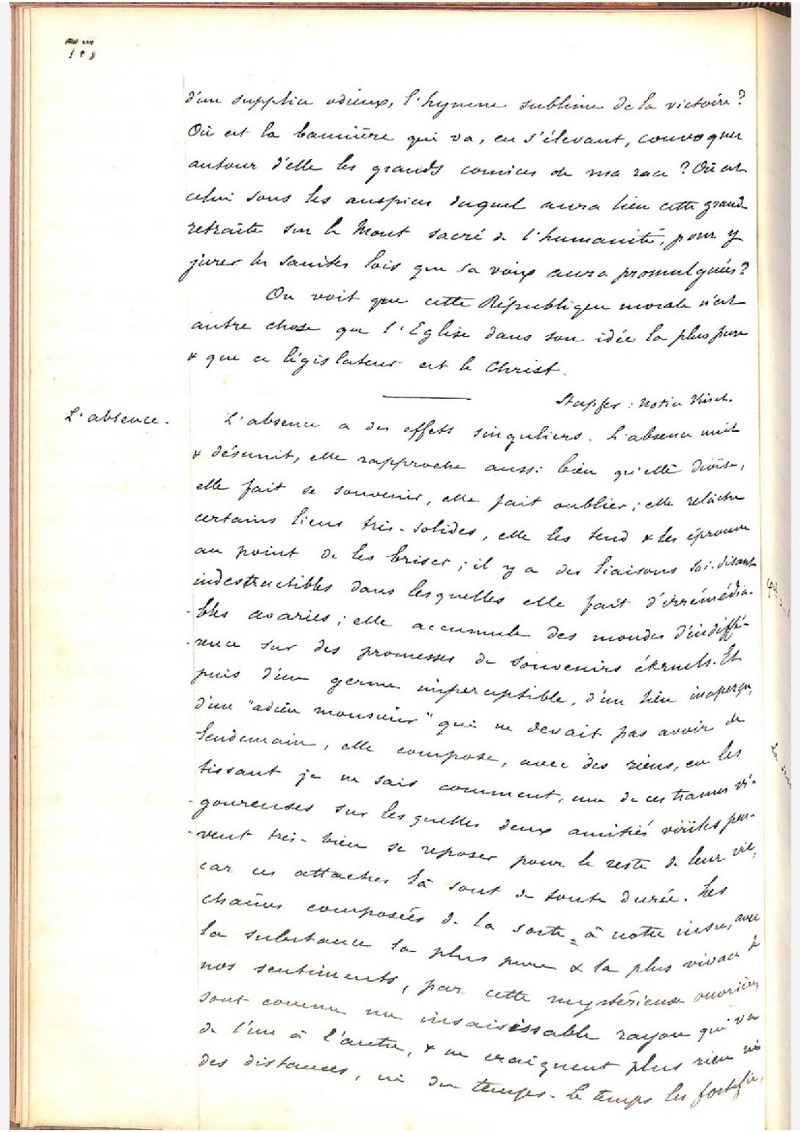 d'un supplice odieux, l'hymne sublime de la victoire?
Où est la bannière qui va, en s'élevant, convoquer
autour d'elle les grands comices de ma race? Où est
celui sous les auspices duquel aura lieu cette grande
retraite sur le Mont sacré de l'humanité, pour y
jurer les saintes lois que sa voix aura promulguées?
On voit que cette République morale n'est
autre chose que l'Eglise dans son idée la plus pure
& que ce législateur est le Christ.
Stapfer: Notice
L'absence.
L'absence a des effets singuliers. L'absence unit
& désunit, elle rapproche aussi bien qu'elle divise,
elle fait se souvenir, elle fait oublier; elle relâche
certains liens très-solides, elle les tend & les éprouve
au point de les briser; il y a des liaisons soi-disant
indestructibles dans lesquelles elle fait d'irrémédia-
bles avaries; elle accumule des mondes d'indiffé-
rence sur des promesses de souvenirs éternels. Et
puis d'un germe imperceptible, d'un lien inaperçu,
d'un "adieu monsieur" qui ne devait pas avoir de
lendemain, elle compose, avec des riens, en les
tissant je ne sais comment, une de ces trames vi-
goureuses sur lesquelles deux amitiés viriles peu-
vent très-bien se reposer pour le reste de leur vie,
car ces attaches là sont de toute durée. Les
chaînes composées de la sorte, à notre insu, avec
la substance la plus pure & la plus vivace de
nos sentiments, par cette mystérieuse ouvrière,
sont comme un insaisissable rayon qui va
de l'une à l'autre, & ne craignent plus rien ni
des distances, ni du temps. Le temps les fortifie,